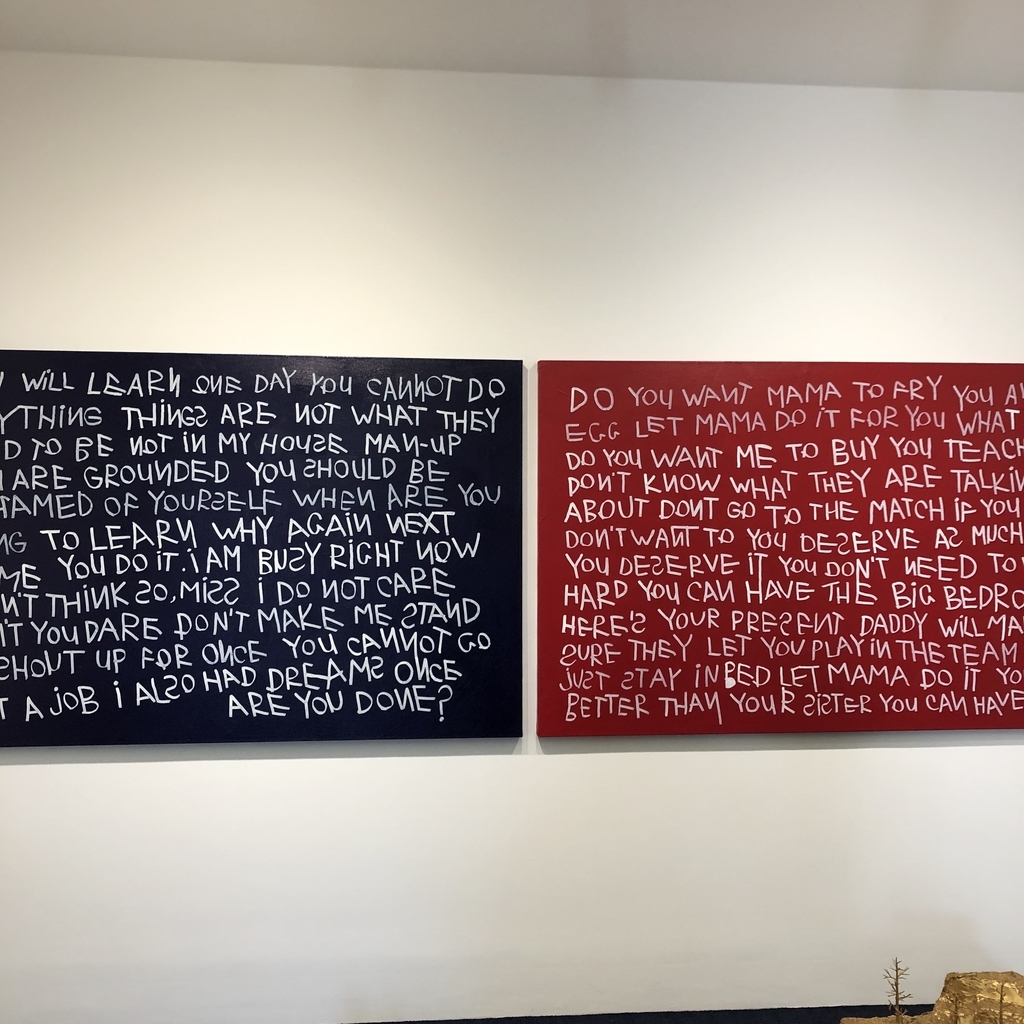 WiLL LEARN ONE DAY YOU CANNOT DO
YTHING THINGS ARE NOT WHAT THEY
D TO BE NOT IN MY HOUSE MAN-UP
ARE GROUNDED YOU SHOULD BE
HAMED OF YOURSELF WHEN ARE YOU
NG TO LEARN WHY AGAIN NEXT
ME YOU DO IT. i AM BUSY RiGHT NOW
N'T THINK SO, MiSS i DO NOT CARE
'T YOU DARE DON'T MAKE ME STAND
SHOUT UP FOR ONCE YOU CANNOT GO
T A JOB i ALSO HAD DREAMS ONCE
ARE YOU DONE?
DO YOU WANT MAMA TO FRY YOU AN
EGG LET MAMA DO iT FOR YOU WHAT
DO YOU WANT ME TO BUY YOU TEACH
DON'T KNOW WHAT THEY ARE TALKIN
ABOUT DONT GO TO THE MATCH iF YOU
DON'T WANT TO YOU DESERVE AS MUCH
YOU DESERVE IT YOU DON'T NEED TO
HARD YOU CAN HAVE THE BIG BEDRO
HERE'S YOUR PRESENT DADDY WiLL MA
SURE THEY LET YOU PLAY iN THE TEAM
JUST STAY iN BED LET MAMA DO IT YO
BETTER THAN YOUR SiSTER YOU CAN HAVE